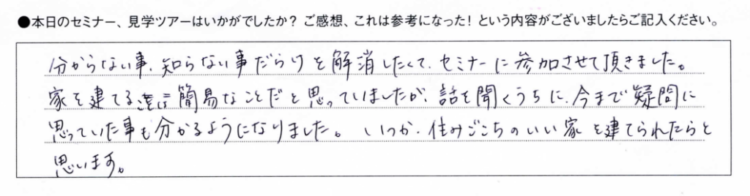 ●本日のセミナー、見学ツアーはいかがでしたか？ ご感想、これは参考になった！という内容がございましたらご記入ください。
分からない事、知らない事だらけを解消したくて、セミナーに参加させて頂きました。
家を建てる 簡易なことだと思っていましたが、話を聞くうちに、今まで疑問に
思っていた事も分かるようになりました。いつか、住みごこちのいい家を建てられたらと
思います。